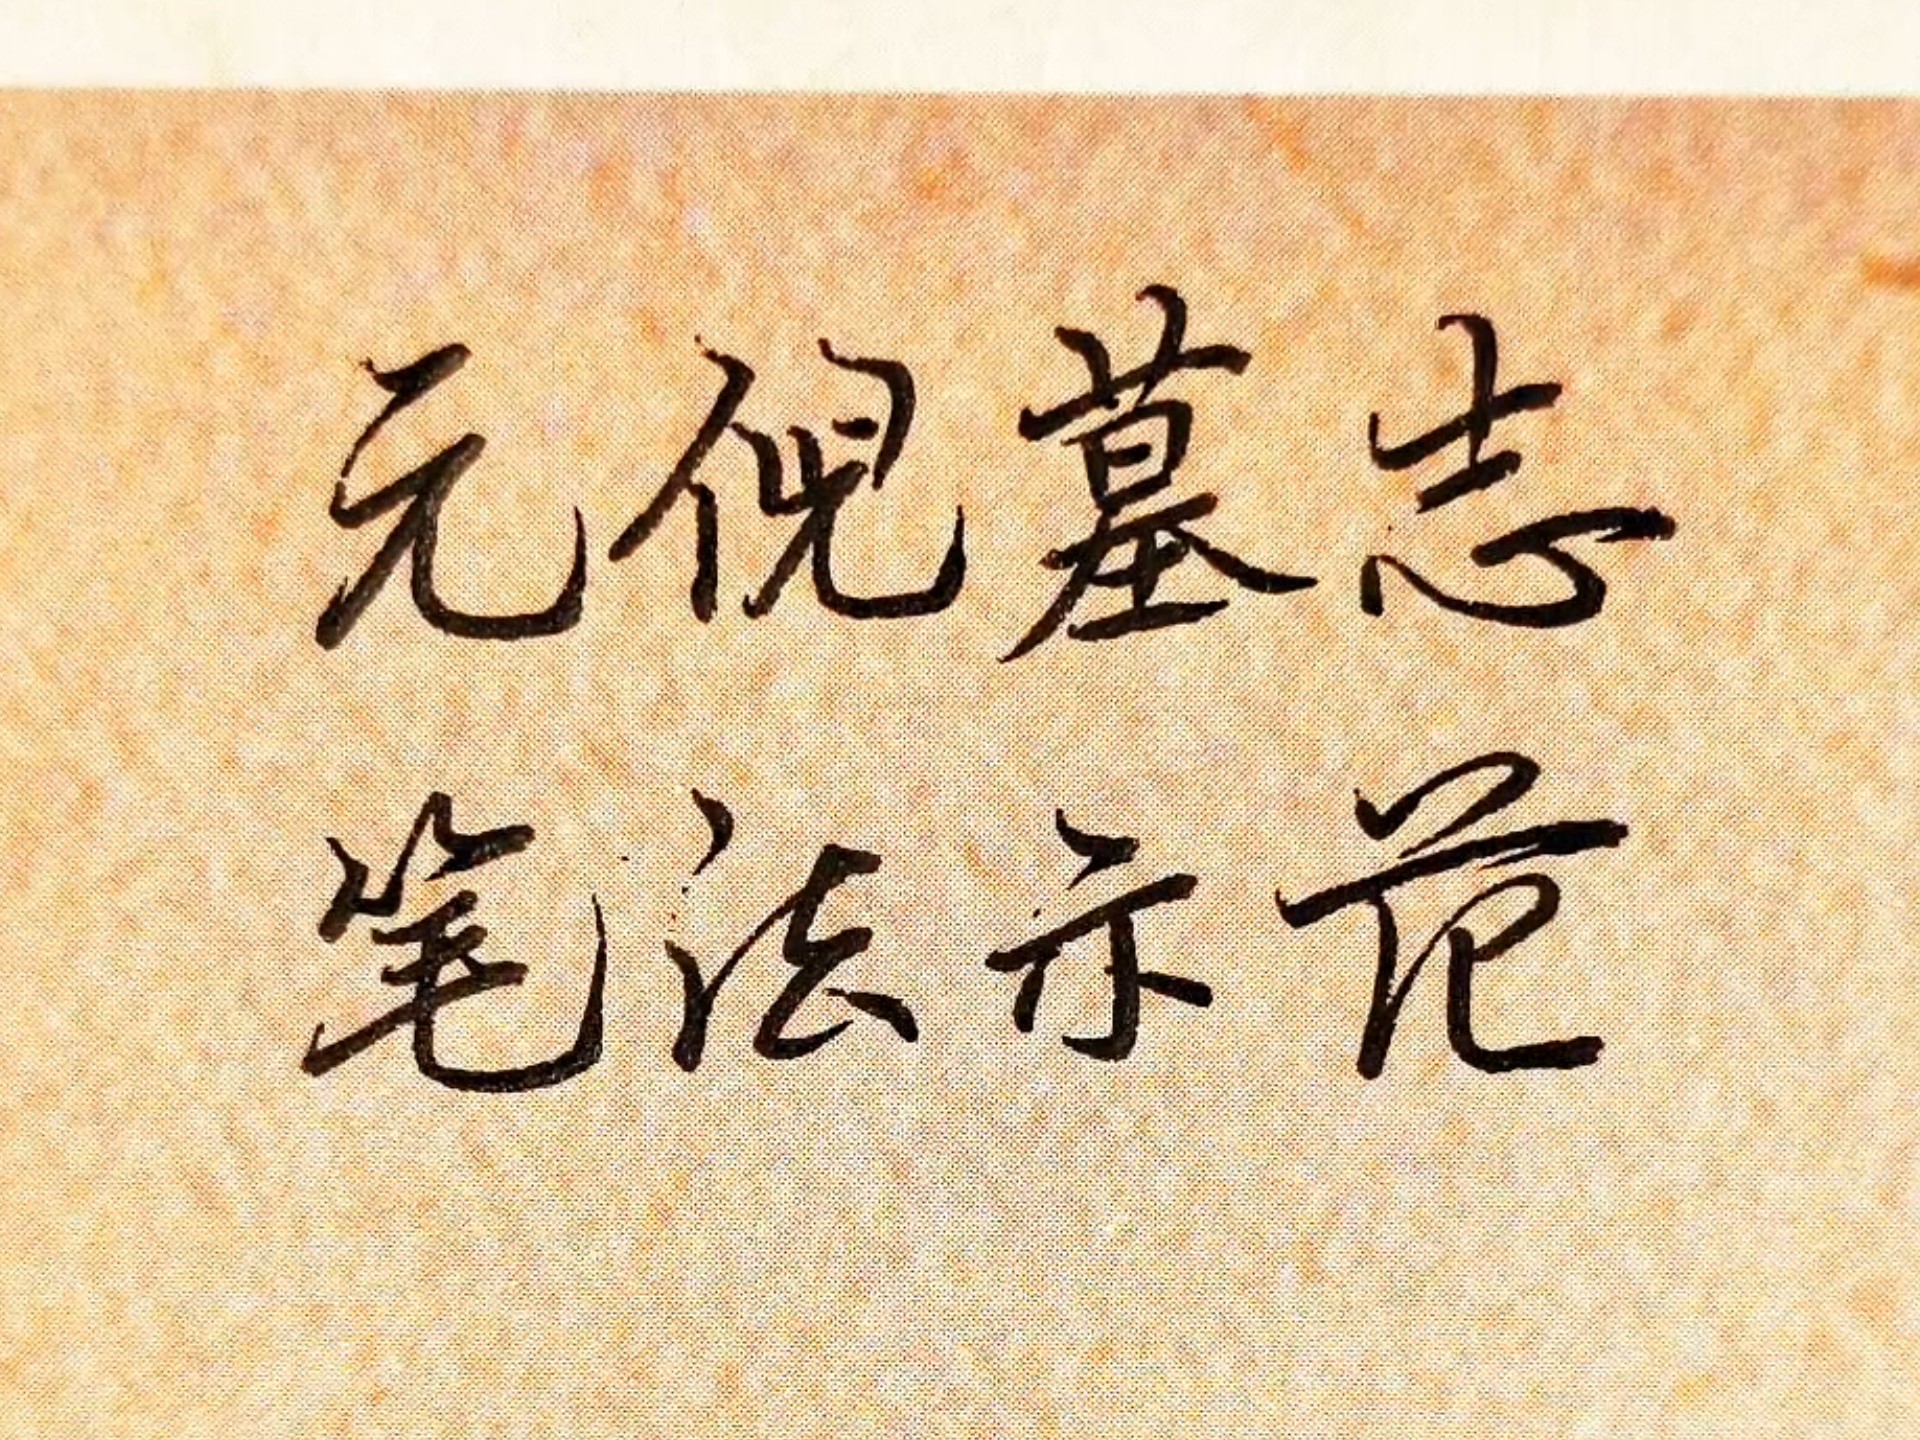 元倪墓志
笔法示范